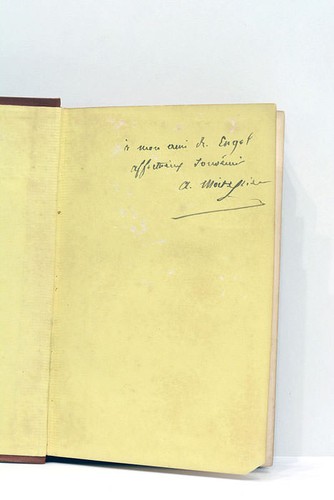 à mon ami Dr. Engel
affectueux souvenir
A.